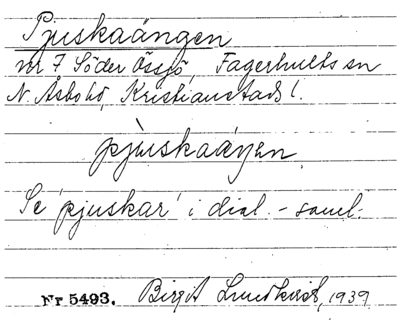 Pjuskaängen
nr 7 Söder Össjö, Fagerhults sn
N. Åsbo hd, Kristianstads l.
pjùskaäŋen
Se 'pjuskar' i dial.-saml.
Nr 5493. Birgit Lundkvist, 1939